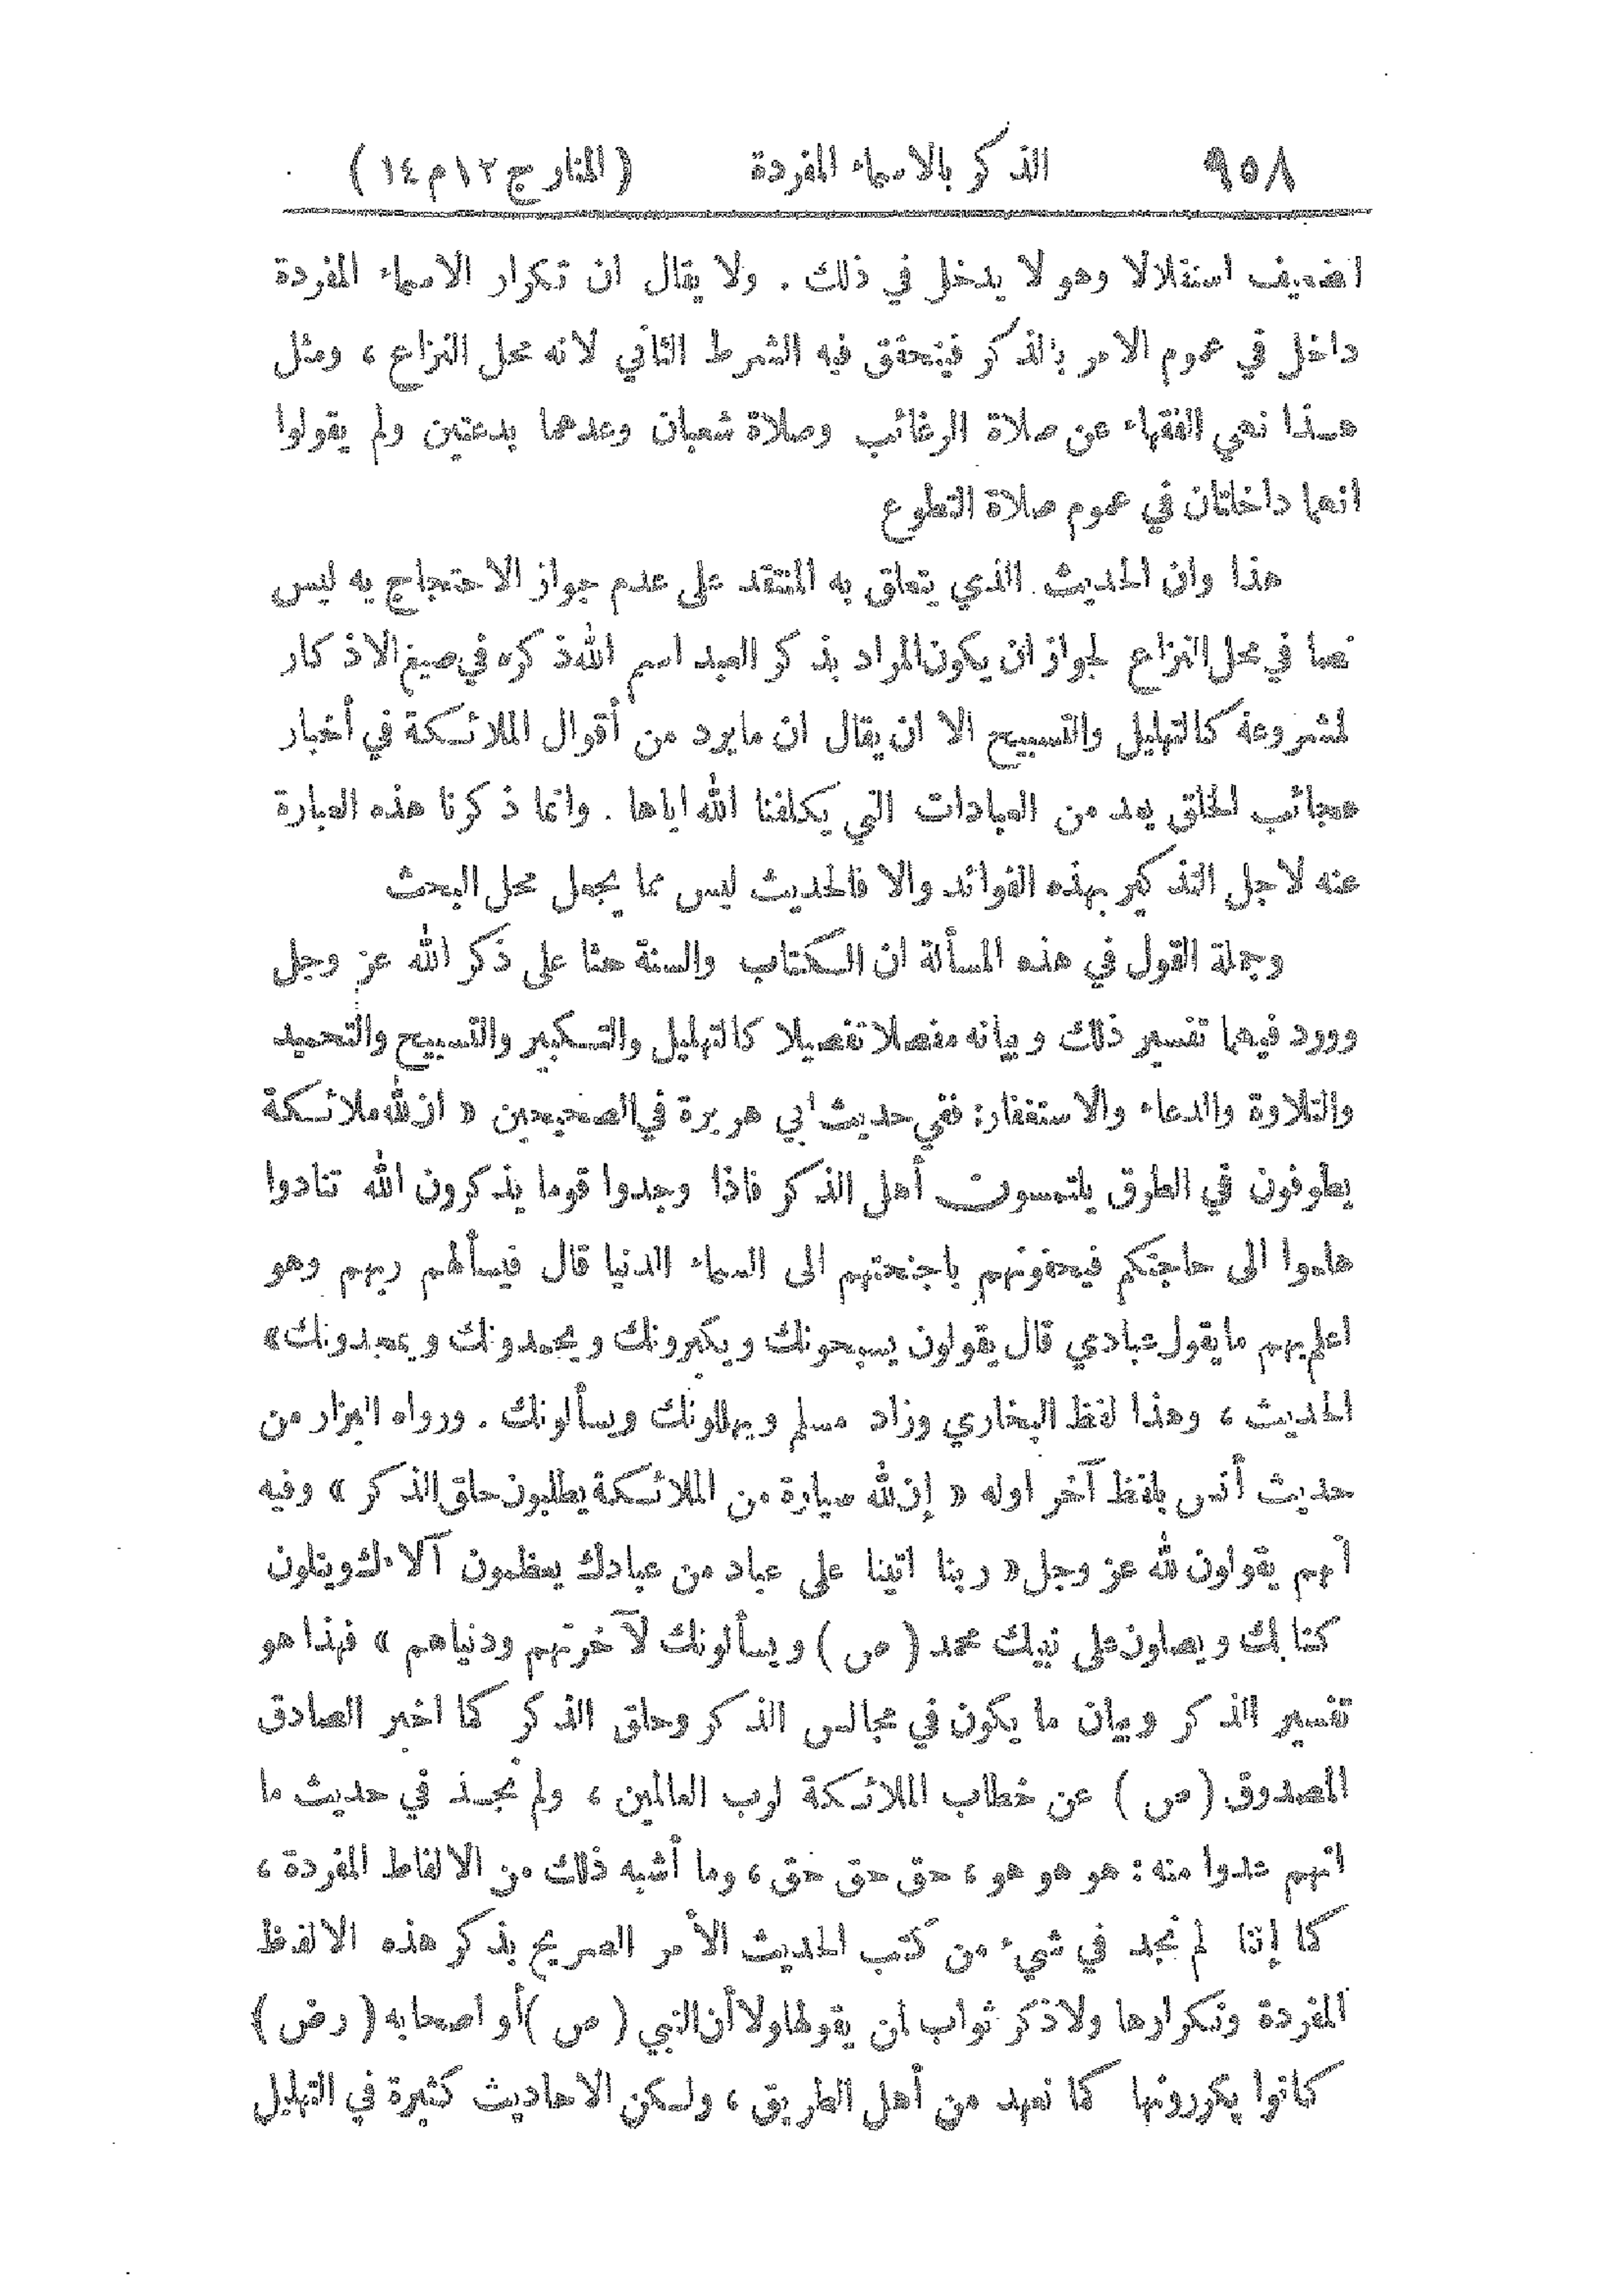 ٩٥٨ الذكر بالاسماء المفردة (المنار ج ١٢ م ١٤)
لضعيف استقلالا وهو لا يدخل في ذلك . ولا يقال ان تكرار الاسماء المفردة
داخل في عموم الامر بالذكر فيتحقق فيه الشرط الثاني لانه محل النزاع ، ومثل
هذا نهي الفقهاء عن صلاة الرغائب وصلاة شعبان وعدهما بدعتين ولم يقولوا
انهما داخلتان في عموم صلاة التطوع
هذا وان الحديث الذي يتعلق به المنتقد على عدم جواز الاحتجاج به ليس
نصا في محل النزاع لجواز ان يكون المراد بذكر العبد اسم الله ذكره في صيغ الاذكار
لمشروعة كالتهليل والتسبيح الا ان يقال ان ما يرد من أقوال الملائكة في أخبار
عجائب الخلق يعد من العبادات التي يكلفنا الله اياها . وانما ذكرنا هذه العبارة
عنه لاجل التذكير بهذه الفوائد والا فالحديث ليس مما يجعل محل البحث
وجملة القول في هذه المسألة ان الكتاب والسنة حثا على ذكر الله عز وجل
وورد فيهما تفسير ذلك وبيانه مفصلا تفصيلا كالتهليل والتكبير والتسبيح والتحميد
والتلاوة والدعاء والاستغفار: ففي حديث ابي هريرة في الصحيحين « ان لله ملائكة
يطوفون في الطرق يلتمسون أهل الذكر فاذا وجدوا قوما يذكرون الله تنادوا
هلموا الى حاجتكم فيحفونهم باجنحتهم الى السماء الدنيا قال فيسألهم ربهم وهو
اعلم بهم ما يقول عبادي قال يقولون يسبحونك ويكبرونك ويحمدونك ويمجدونك»
الحديث ، وهذا لفظ البخاري وزاد مسلم ويهللونك ويسألونك . ورواه البزار من
حديث أنس بلفظ آخر اوله « إن لله سيارة من الملائكة يطلبون حلق الذكر » وفيه
انهم يقولون لله عز وجل « ربنا اتينا على عباد من عبادك يعظمون آلاءك ويتلون
كتابك ويصلون على نبيك محمد ( ص ) ويسألونك لآخرتهم ودنياهم » فهذا هو
تفسير الذكر وبيان ما يكون في مجالس الذكر وحلق الذكر كما اخبر الصادق
المصدوق ( ص ) عن خطاب الملائكة لرب العالمين ، ولم نجد في حديث ما
انهم عدوا منه : هو هو هو ، حق حق حق ، وما أشبه ذلك من الالفاظ المفردة ،
كما إننا لم نجد في شيء من كتب الحديث الأمر الصريح بذكر هذه الالفظ
المفردة وتكرارها ولا ذكر ثواب لمن يقولها ولا أن النبي ( ص ) أو اصحابه ( رض )
كانوا يكررونها كما نعهد من أهل الطريق ، ولكن الاحاديث كثيرة في التهليل